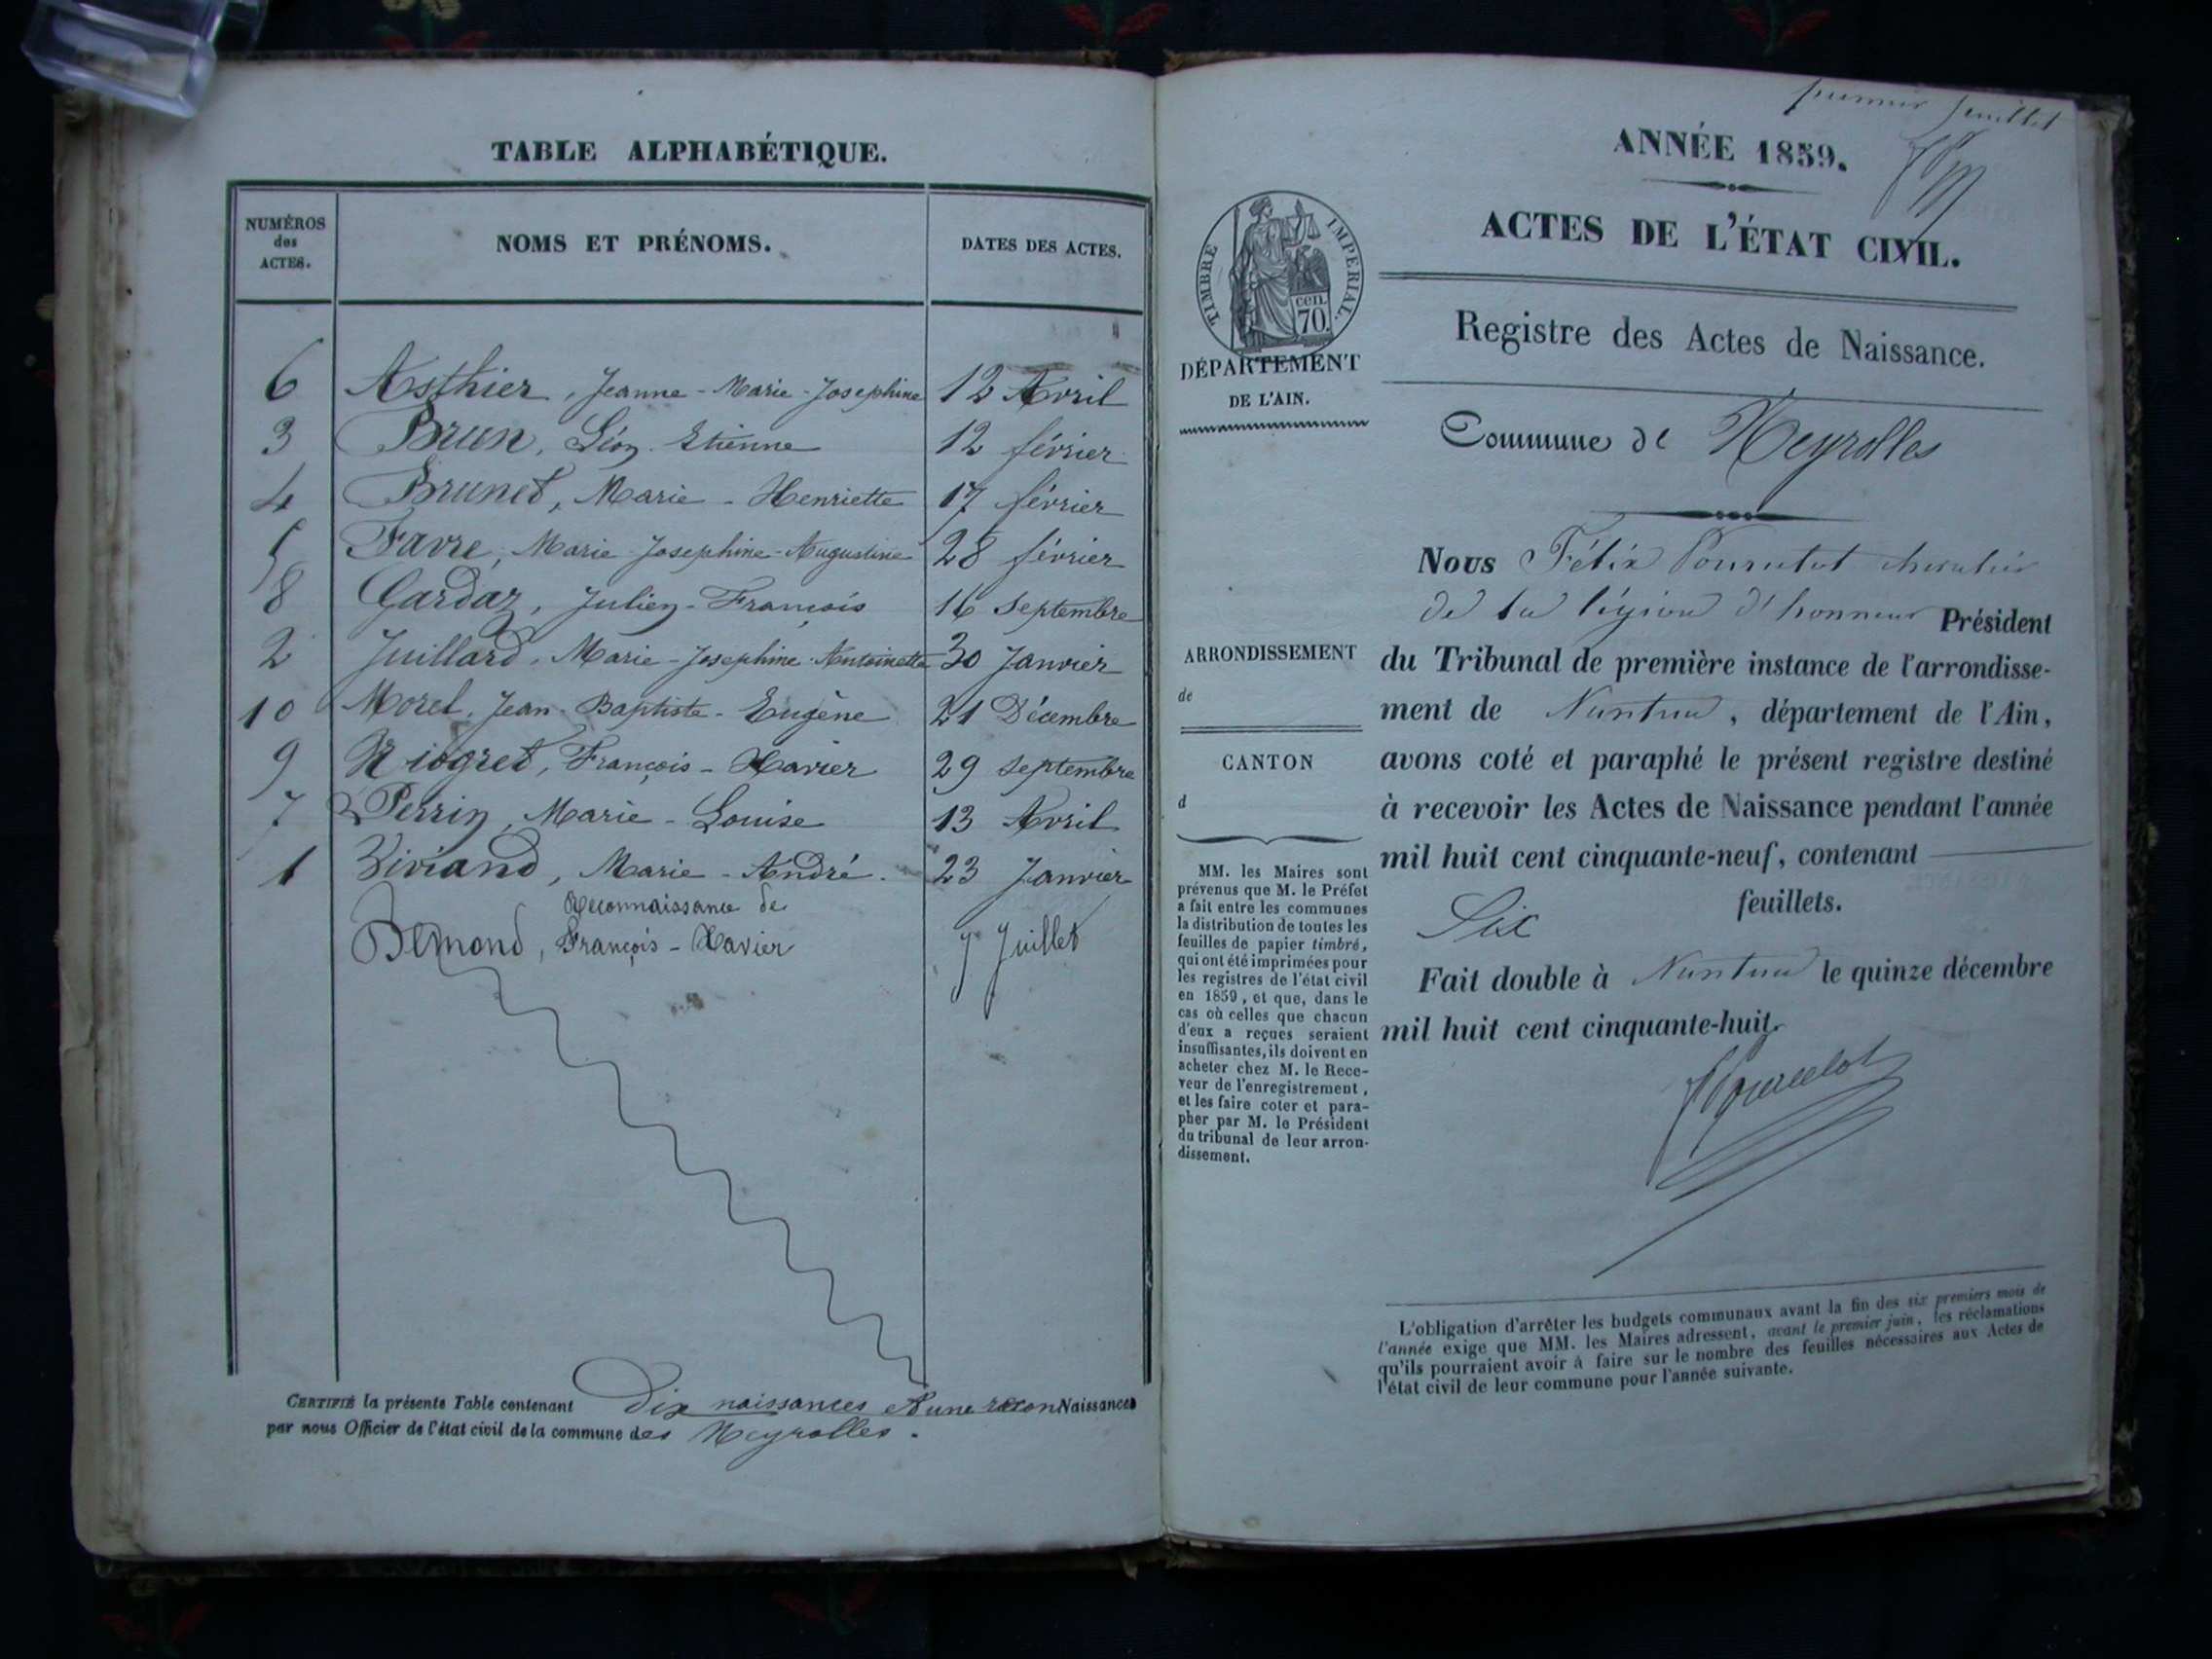 TABLE ALPHABÉTIQUE.
NUMÉROS des ACTES.
NOMS ET PRÉNOMS.
DATES DES ACTES.
6 Asthier, Jeanne - Marie - Josephine 12 Avril
3 Brun, Léon Etienne 12 février
4 Brunet, Marie - Henriette 17 février
5 Favre, Marie Josephine - Augustine 28 février
8 Gardaz, Julien - François 16 Septembre
2 Juillard, Marie - Josephine Antoinette 30 Janvier
10 Morel, Jean - Baptiste - Eugène 21 Décembre
9 Niogret, François - Xavier 29 Septembre
7 Perrin, Marie - Louise 13 Avril
1 Viviand, Marie - André. 23 Janvier
Reconnaissance de
Bémond, François - Xavier 7 Juillet
CERTIFIÉ la présente Table contenant Dix naissances & une recon Naissances
par nous Officier de l'état civil de la commune des Neyrolles.
premier feuillet
ANNÉE 1859.
ACTES DE L'ÉTAT CIVIL.
TIMBRE IMPERIAL.
cen. 70.
DÉPARTEMENT
DE L'AIN.
Registre des Actes de Naissance.
Commune de Neyrolles
Nous Félix chevalier
de la légion d'honneur Président
du Tribunal de première instance de l'arrondisse-
ment de Nantua, département de l'Ain,
avons coté et paraphé le présent registre destiné
à recevoir les Actes de Naissance pendant l'année
mil huit cent cinquante-neuf, contenant
Six feuillets.
Fait double à Nantua le quinze décembre
mil huit cent cinquante-huit.
ARRONDISSEMENT
de
CANTON
d
MM. les Maires sont
prévenus que M. le Préfet
a fait entre les communes
la distribution de toutes les
feuilles de papier timbré,
qui ont été imprimées pour
les registres de l'état civil
en 1859, et que, dans le
cas où celles que chacun
d'eux a reçues seraient
insuffisantes, ils doivent en
acheter chez M. le Rece-
veur de l'enregistrement,
et les faire coter et para-
pher par M. le Président
du tribunal de leur arron-
dissement.
L'obligation d'arrêter les budgets communaux avant la fin des six premiers mois de
l'année exige que MM. les Maires adressent, avant le premier juin, les réclamations
qu'ils pourraient avoir à faire sur le nombre des feuilles nécessaires aux Actes de
l'état civil de leur commune pour l'année suivante.